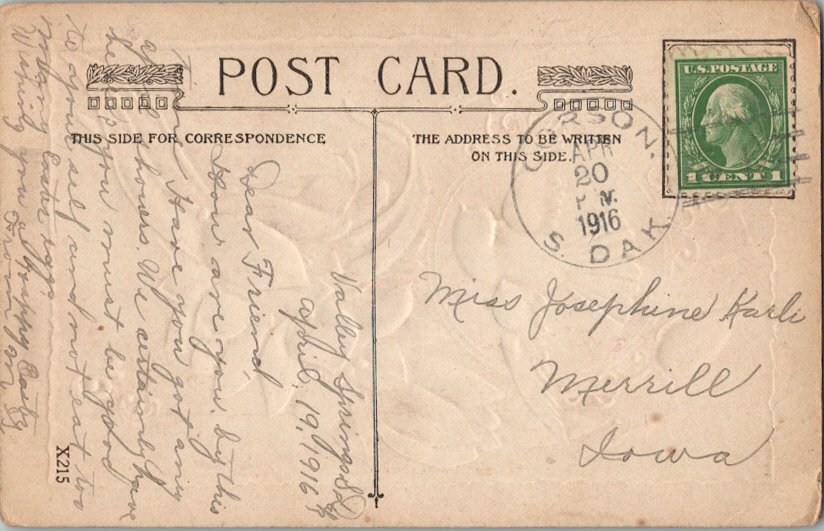 POST CARD.
THIS SIDE FOR CORRESPONDENCE
THE ADDRESS TO BE WRITTEN
ON THIS SIDE.
U.S. POSTAGE
1 CENT 1
CORSON.
APR
20
P M.
1916
S. DAK.
Miss Josephine Karli
Merrill
Iowa
Valley Springs S D
April, 19, 1916
Dear Friend,
How are you, by this
time Have you got any
showers. We certainly have
here you must be good
to your self and not eat too
many Easter eggs
Wishing you a happy Easter
From
X215